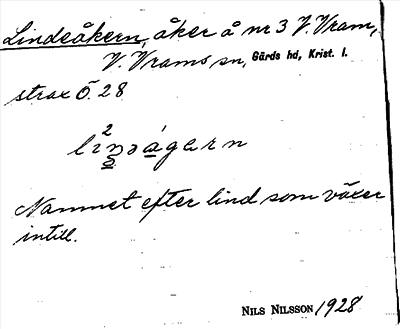 Lindeåkern, åker å nr 3 V. Vram,
V. Vrams sn, Gärds hd, Krist. l.
strax Ö. 28
Namnet efter lind som växer
intill.
NILS NILSSON 1928.